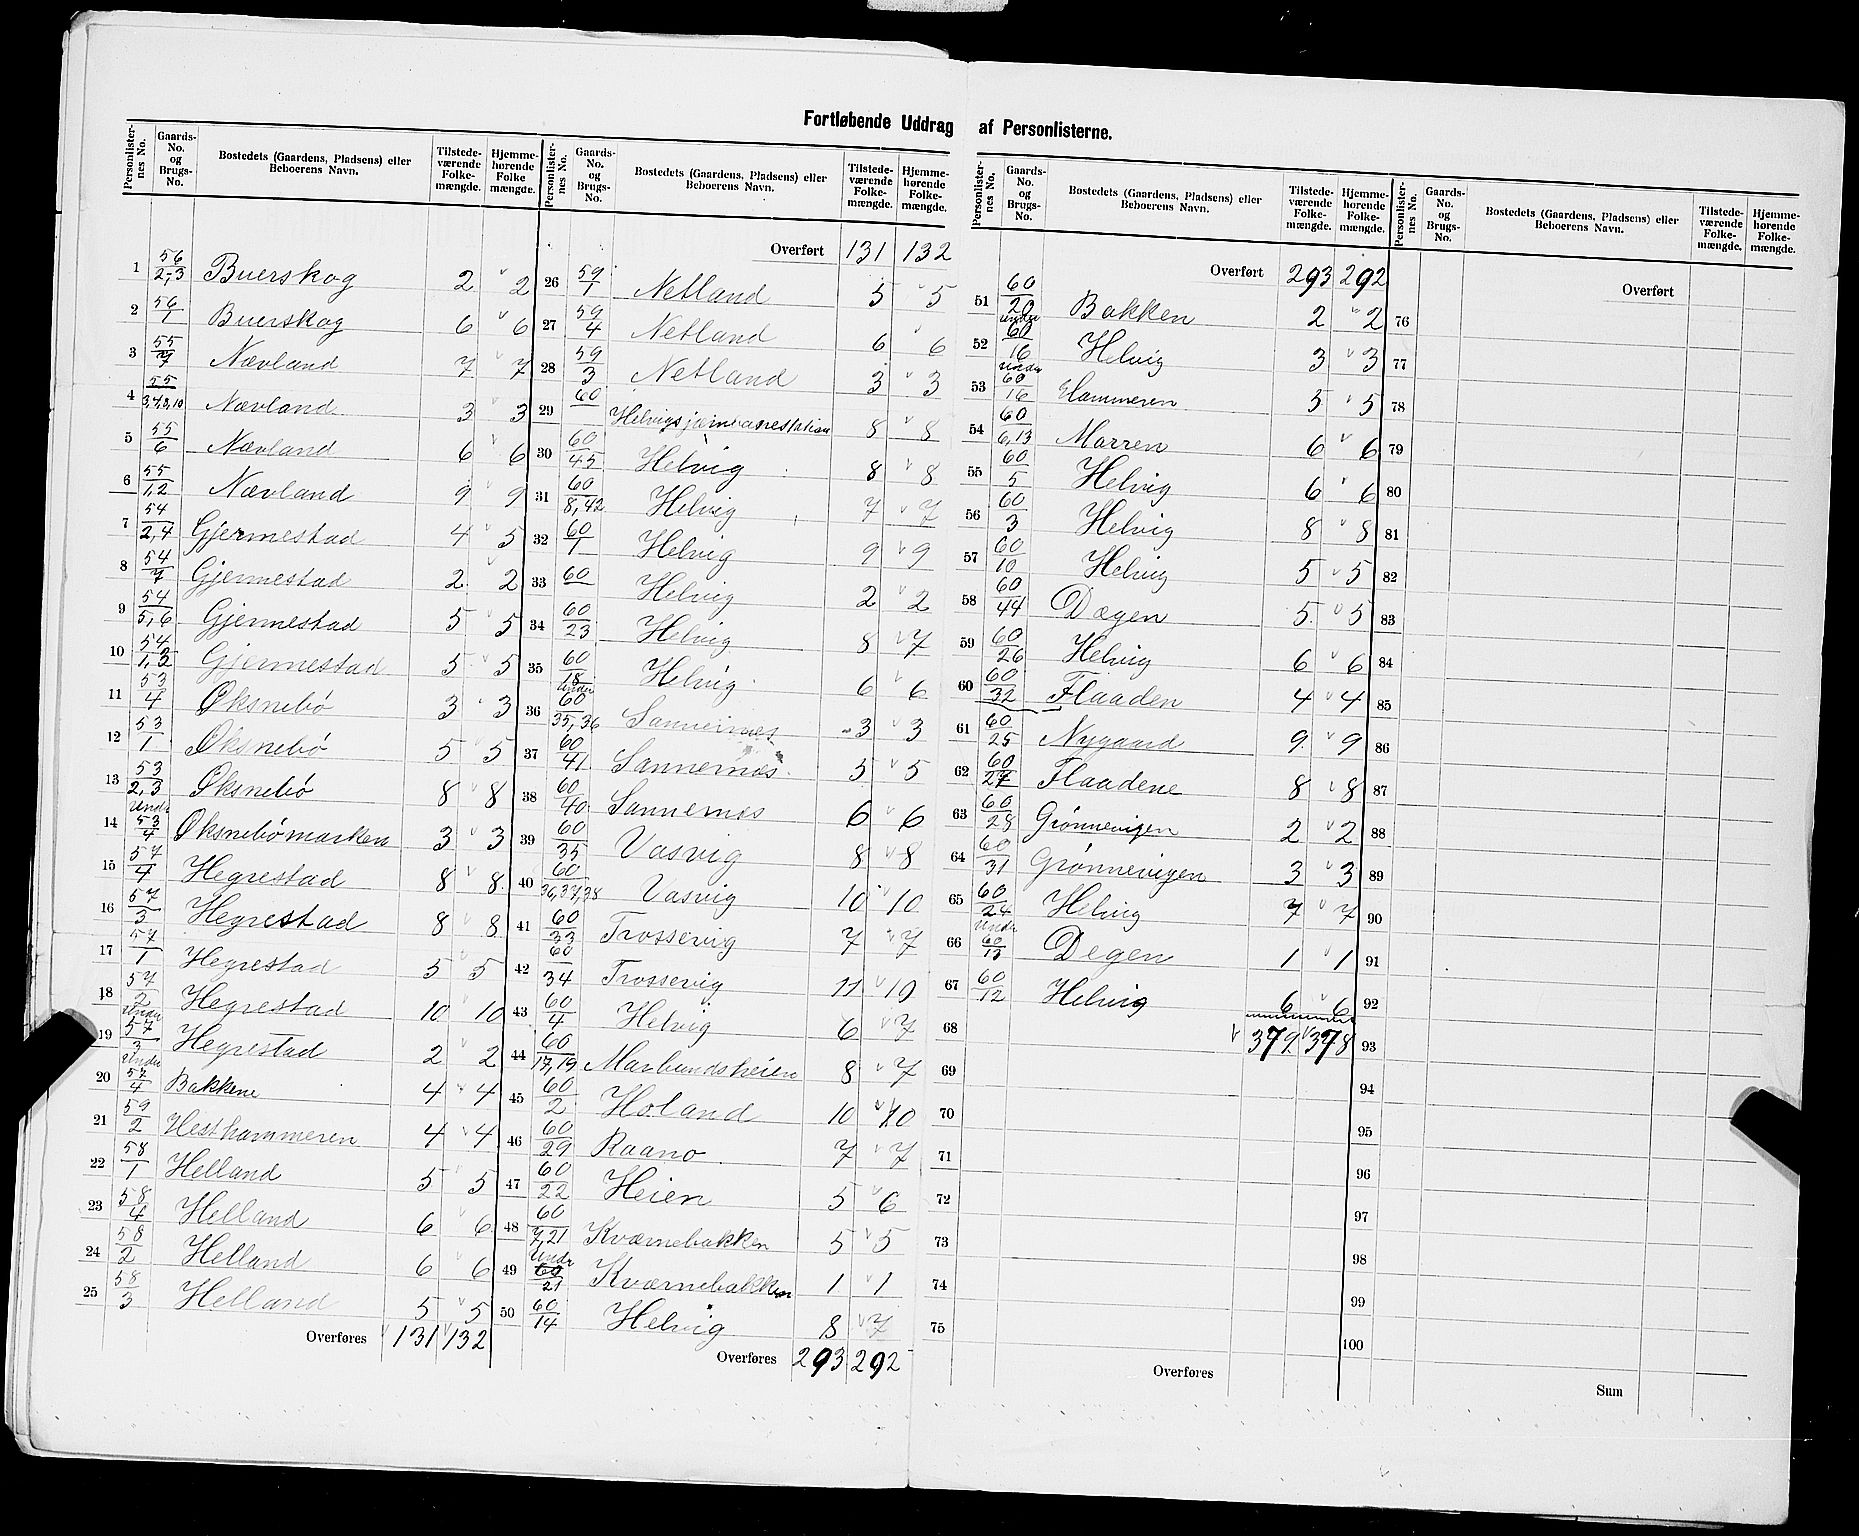 Fortløbende Uddrag af Personlisterne.
Personlisternes No. Gaards-No. og Brugs-No. Bostedets (Gaardens, Pladsens) eller Beboerens Navn. Tilstedeværende Folkemængde. Hjemmehørende Folkemængde.
1 56/2,3 Buerskog 2 2
2 56/1 Buerskog 6 6
3 55/7 Nævland 7 7
4 55/3,4,8,10 Nævland 3 3
5 55/6 Nævland 6 6
6 55/1,2 Nævland 9 9
7 54/2,4 Gjermestad 4 5
8 54/7 Gjermestad 2 2
9 54/5,6 Gjermestad 5 5
10 54/1,3 Gjermestad 5 5
11 53/4 Øksnebø 3 3
12 53/1 Øksnebø 5 5
13 53/2,3 Øksnebø 8 8
14 Under 53/4 Øksnebømarken 3 3
15 57/4 Hegrestad 8 8
16 57/3 Hegrestad 8 8
17 57/1 Hegrestad 5 5
18 57/2 Hegrestad 10 10
19 Under 57/3 Hegrestad 2 2
20 Under 57/4 Bakkene 4 4
21 59/2 Hesthammeren 4 4
22 58/1 Helland 5 5
23 58/4 Helland 6 6
24 58/2 Helland 6 6
25 58/3 Helland 5 5
Overføres 131 132
Personlisternes No. Gaards-No. og Brugs-No. Bostedets (Gaardens, Pladsens) eller Beboerens Navn. Tilstedeværende Folkemængde. Hjemmehørende Folkemængde.
Overført 131 132
26 59/1 Netland 5 5
27 59/4 Netland 6 6
28 59/3 Netland 3 3
29 60 Helvigs jærnbanestation 8 8
30 60/45 Helvig 8 8
31 60/8,42 Helvig 7 7
32 60/1 Helvig 9 9
33 60 Helvig 2 2
34 60/23 Helvig 8 7
35 60/18 Helvig 6 6
36 Under 60/35,36 Sannernes 3 3
37 60/41 Sannernes 5 5
38 60/40 Sannernes 6 6
39 60/35 Vasvig 8 8
40 60/36,37,38 Vasvig 10 10
41 60/33 Trossevig 7 7
42 60/34 Trossevig 11 10
43 60/4 Helvig 6 7
44 60/17,19 Marbundsheien 8 7
45 60/2 Holand 10 10
46 60/29 Raano 7 7
47 60/22 Heien 5 6
48 60/7,21 Kværnebakken 5 5
49 Under 60/21 Kværnebakken 1 1
50 60/14 Helvig 8 7
Overføres 293 292
Personlisternes No. Gaards-No. og Brugs-No. Bostedets (Gaardens, Pladsens) eller Beboerens Navn. Tilstedeværende Folkemængde. Hjemmehørende Folkemængde.
Overført 293 292
51 60/20 Bakken 2 2
52 under 60/16 Helvig 3 3
53 Under 60/16 Hammeren 5 5
54 60/6,13 Marren 6 6
55 60/5 Helvig 6 6
56 60/3 Helvig 8 8
57 60/10 Helvig 5 5
58 60/44 Dægen 5 5
59 60/26 Helvig 6 6
60 60/32 Flaaden 4 4
61 60/25 Nygaard 9 9
62 60/27 Flaadene 8 8
63 60/28 Grønnevigen 2 2
64 60/31 Grønnevigen 3 3
65 60/24 Helvig 7 7
66 Under 60/13 Degen 1 1
67 60/12 Helvig 6 6
68 379 378
69
70
71
72
73
74
75
Overføres
Personlisternes No. Gaards-No. og Brugs-No. Bostedets (Gaardens, Pladsens) eller Beboerens Navn. Tilstedeværende Folkemængde. Hjemmehørende Folkemængde.
Overført
76
77
78
79
80
81
82
83
84
85
86
87
88
89
90
91
92
93
94
95
96
97
98
99
100
Sum